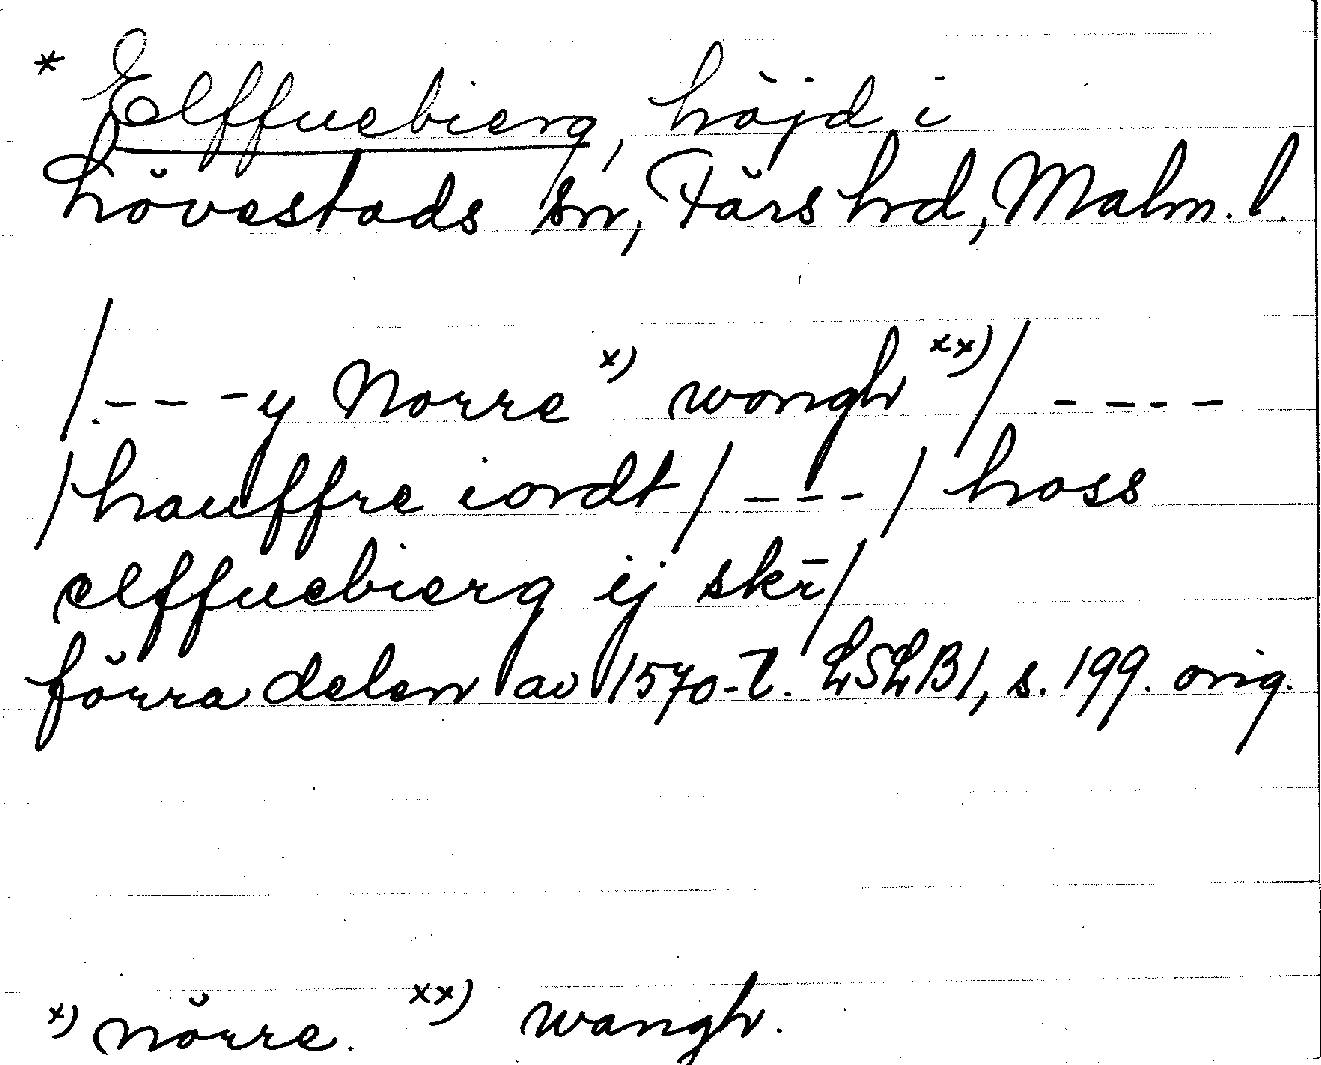 * Elffuebierg, höjd i
hövestads sn, Färs hrd, Malm. l.
/ - - - y Norre x) wongh xx) / - - - -
/ hauffre iordt / - - - / hoss
elffuebierg ij skr̄ /
förra delen av 1570-t. LSLB1, s. 199. orig.
x) nörre. xx) wangh.